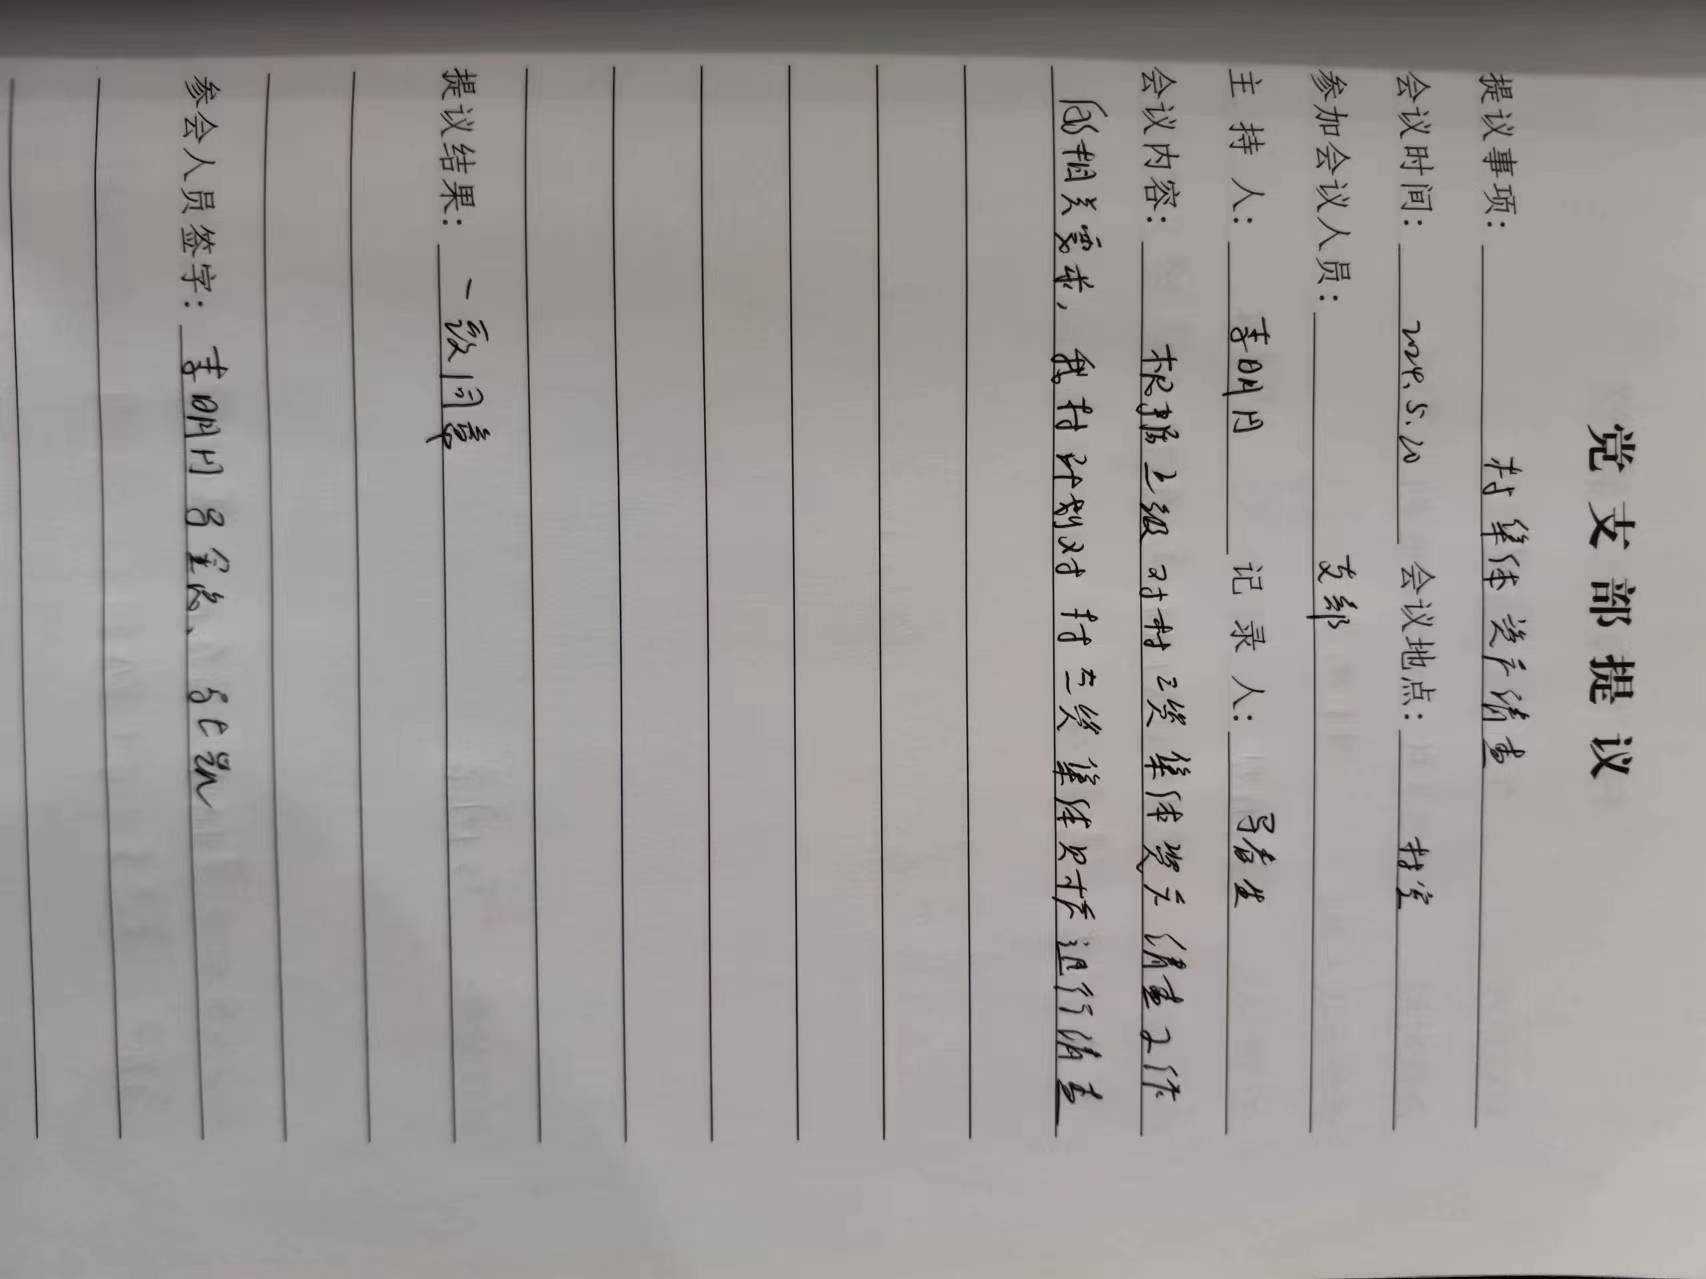 党支部提议
提议事项：村集体资产清查
会议时间：2024.5.20 会议地点：村室
参加会议人员：支部
主持人：李明月 记录人：春生
会议内容：根据上级对村三资集体资产清查工作
的相关要求，我村计划对村三资集体财产进行清查
提议结果：一致同意
参会人员签字：李明月